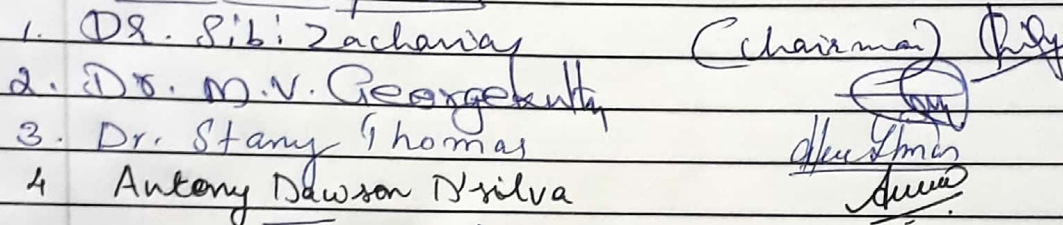 1. DR. Sibi Zacharias (Chairman)
2. Dr. M.V. Georgekutty
3. Dr. Stany Thomas
4 Antony Dawson D'silva